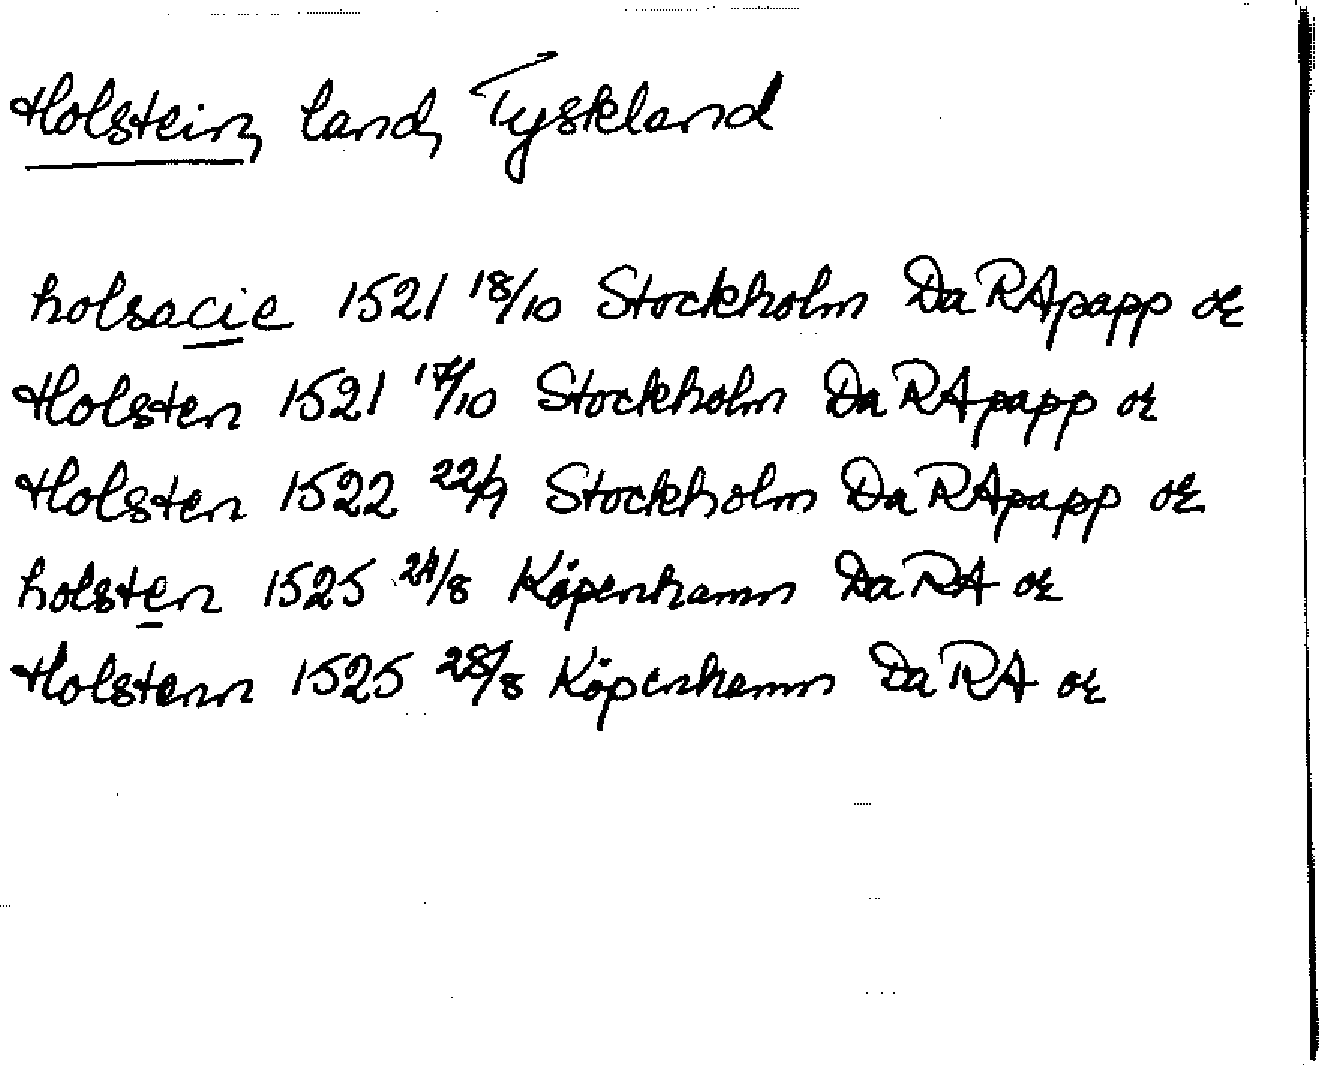 Holstein, land, Tyskland
holsacie 1521 18/10 Stockholm Da RApapp or
Holsten 1521 17/10 Stockholm Da RApapp or
Holsten 1522 22/9 Stockholm Da RApapp or
holsten 1525 24/8 Köpenhamn Da RA or
Holstenn 1525 28/8 Köpenhamn Da RA or